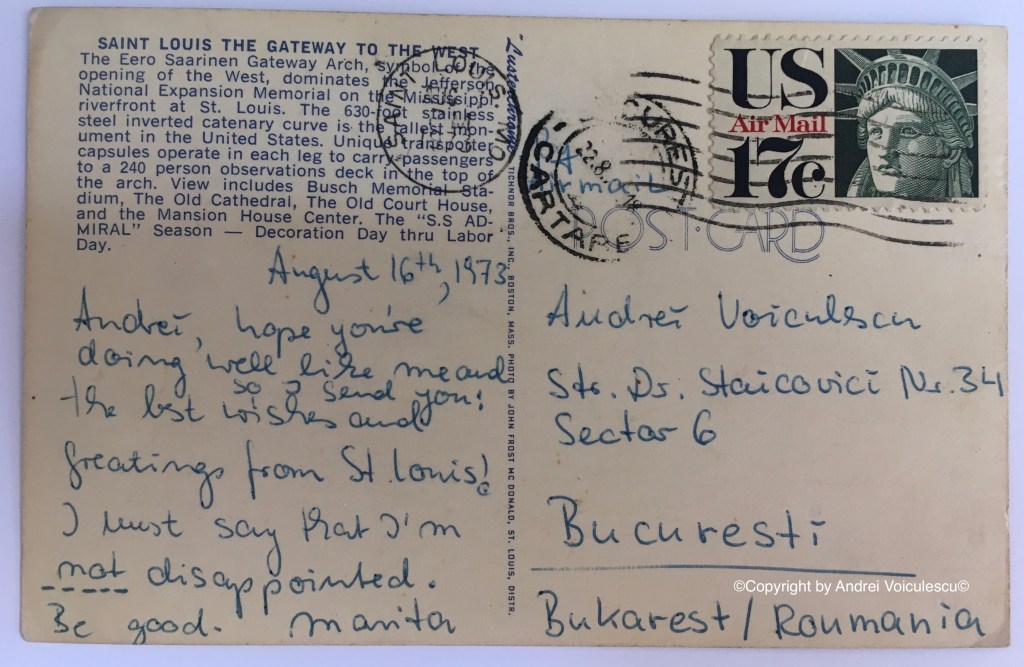 SAINT LOUIS THE GATEWAY TO THE WEST
The Eero Saarinen Gateway Arch, symbol of the
opening of the West, dominates the Jefferson
National Expansion Memorial on the Mississippi
riverfront at St. Louis. The 630-foot stainless
steel inverted catenary curve is the tallest mon-
ument in the United States. Unique transporter
capsules operate in each leg to carry passengers
to a 240 person observations deck in the top of
the arch. View includes Busch Memorial Sta-
dium, The Old Cathedral, The Old Court House,
and the Mansion House Center. The "S.S AD-
MIRAL" Season — Decoration Day thru Labor
Day.
August 16th, 1973
Andrei, hope you're
doing well like me and
so I send you:
the best wishes and
greatings from St. Louis!
I must say that I'm
not disappointed.
Be good. Marita
TICHNOR BROS., INC., BOSTON, MASS. PHOTO BY JOHN FROST MC DONALD, ST. LOUIS, DISTR.
ST LOUIS, MO
BUCURESTI
22.8
CARTARE
US
Air Mail
17c
Airmail
POST CARD
Andrei Voiculescu
Str. Dr. Staicovici Nr. 34
Sector 6
Bucuresti
Bukarest / Roumania
©Copyright by Andrei Voiculescu©